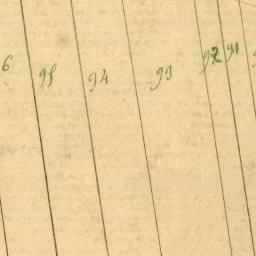 6 95 94 93 92 91